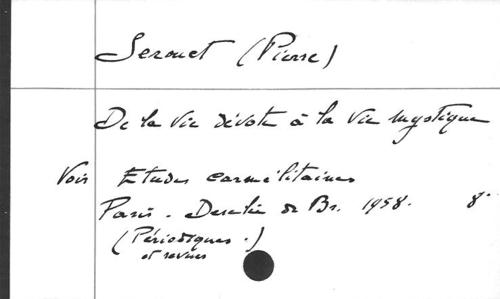 Serouet (Pierre)
De la Vie dévote à la Vie mystique
Voir Etudes carmélitaines
Paris. Desclée de Br. 1958. 8°
(Périodiques.)
et revues